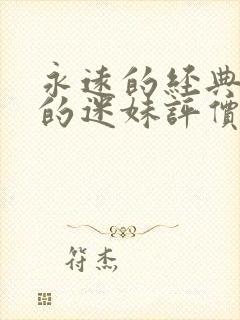 永遠的經典
的迷妹評價
符杰